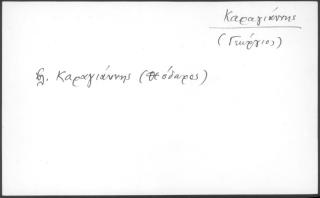 Καραγιάννης
(Γεώργιος)
βλ. Καραγιάννης (Θεόδωρος)